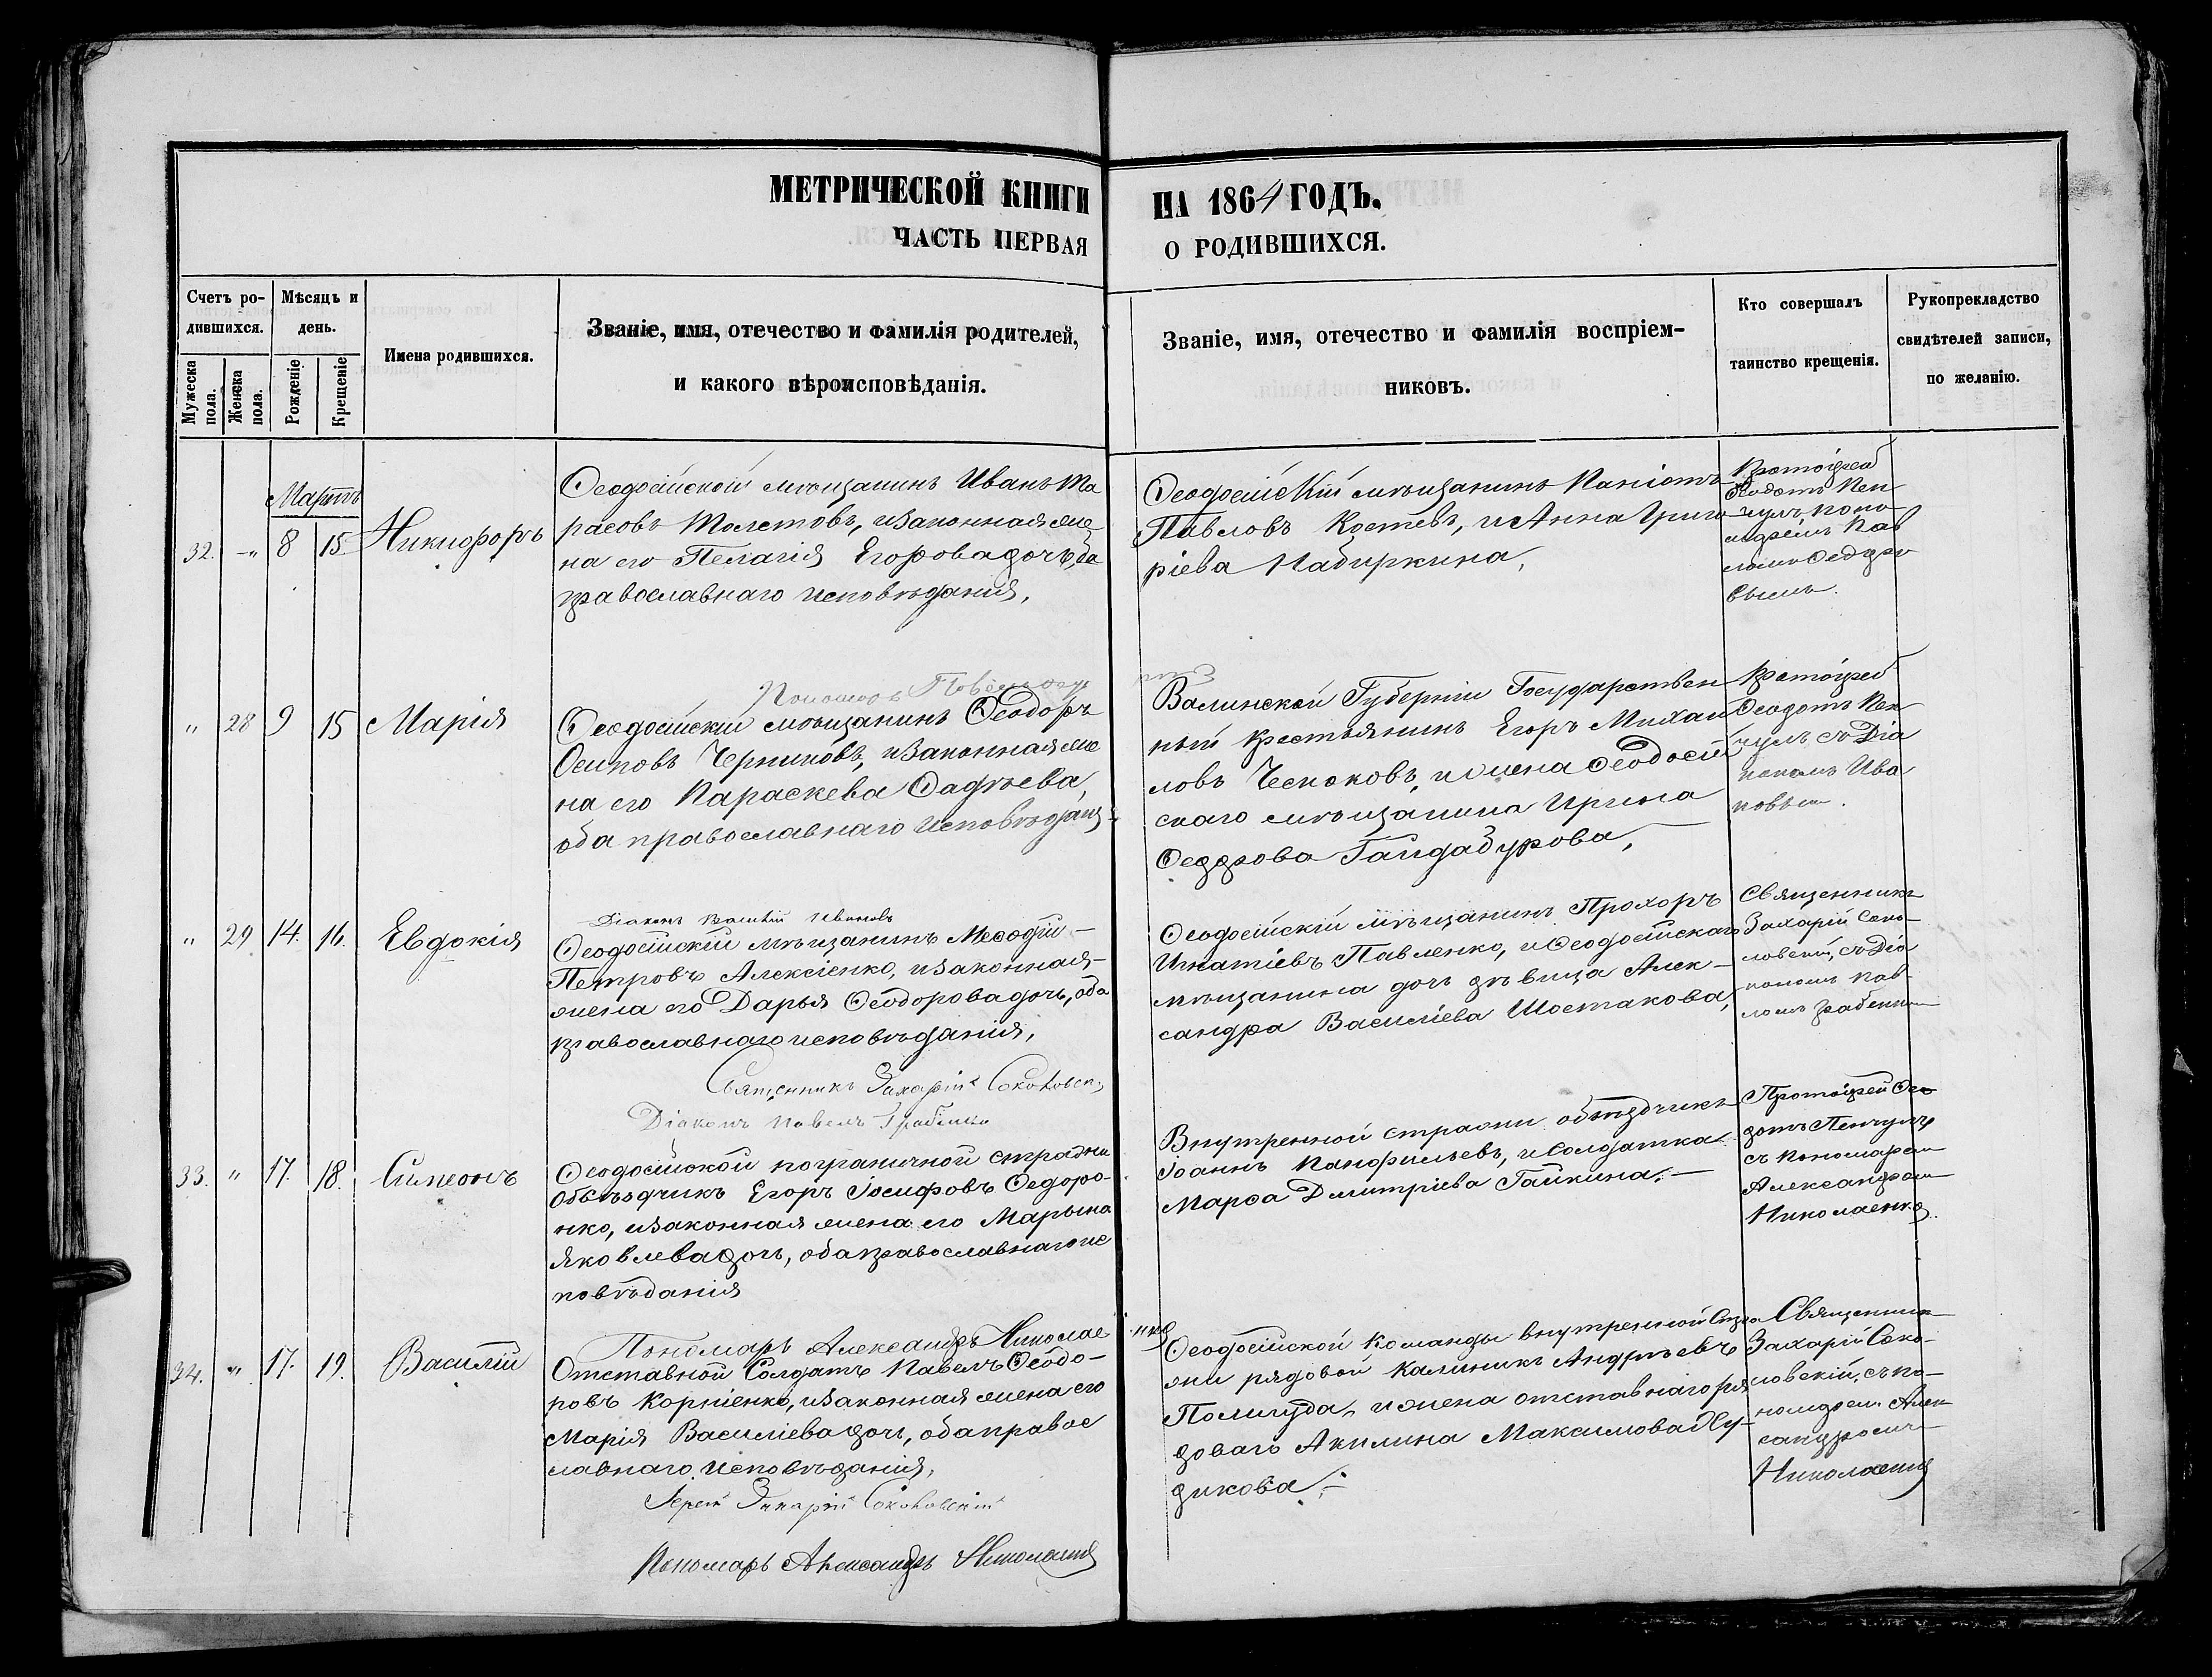 МЕТРИЧЕСКОЙ КНИГИ НА 1864 ГОДЪ.
ЧАСТЬ ПЕРВАЯ О РОДИВШИХСЯ.
Счетъ ро-
дившихся.
Мужеска пола.
Женска пола.
Мѣсяцъ и
день.
Рожденіе
Крещеніе
Имена родившихся.
Званіе, имя, отечество и фамилія родителей,
и какого вѣроисповѣданія.
Званіе, имя, отечество и фамилія воспріем-
никовъ.
Кто совершалъ
таинство крещенія.
Рукоприкладство
свидѣтелей записи,
по желанію.
Мартъ
32. -„ 8 15. Никифоръ
Ѳеодосійской мѣщанинъ Иванъ Та
расовъ Толстовъ, и законная же
на его Пелагія Егорова дочь, оба
православнаго исповѣданія,
Ѳеодосійскій мѣщанинъ
Павловъ Костевъ, и Анна Григо
ріева Набиркина,
Протоіерей
Ѳеодотъ Пен
чулъ с поно
маремъ Пав
ломъ Ѳедоро
вымъ.
Пономарь Павелъ
„ 28 9 15 Марія
Ѳеодосійскій мѣщанинъ Ѳеодоръ
Осиповъ Черниковъ, и законная же
на его Параскева Ѳадѣева,
оба православнаго исповѣданія
Губерніи Государствен
ный крестьянинъ Егоръ Михаи
ловъ Чесноковъ, и жена Ѳеодосій
скаго мѣщанина Ирина
Ѳедорова Гайдабурова,
Протоіерей
Ѳеодотъ Пен
чулъ, съ Діа
кономъ Ива
новымъ.
Діаконъ Василій Ивановъ
„ 29 14. 16. Евдокія
Ѳеодосійскій мѣщанинъ Меѳодій
Петровъ Алексіенко, и законная
жена его Дарья Ѳеодорова дочь, оба
православнаго исповѣданія,
Ѳеодосійскій мѣщанинъ Прохоръ
Игнатіевъ Павленко, и Ѳеодосійскаго
мѣщанина дочь дѣвица Алек-
сандра Василіева Шостакова,
Священникъ
Захарій Соко-
ловскій, съ Діа
кономъ Пав-
ломъ Грабенко
Священникъ Захарій Соколовскій
Діаконъ Павелъ Грабенко
33. „ 17. 18. Симеонъ
Ѳеодосійской пограничной стражи
Объѣздчикъ Егоръ Іосифовъ Ѳедоро-
нко, и законная жена его Марьяна
Яковлева дочь, оба православнаго ис
повѣданія
Внутренной стражи объѣздчикъ
Іоаннъ Панфильевъ, и солдатка
Марѳа Дмитріева Гайкина.
Протоіерей Ѳео
дотъ Пенчулъ
съ пономаремъ
Александромъ
Николаенко.
Пономарь Александръ Николаенко
34. „ 17. 19. Василій
Отставной Солдатъ Павелъ Ѳеодо-
ровъ Корніенко, и законная жена его
Марія Василіева дочь, оба правос
лавнаго исповѣданія,
Ѳеодосійской Команды внутренной Стра
жи рядовой Калиникъ Андрѣевъ
Поличуда, и жена отставнаго ря
доваго Акилина Максимова Су-
дикова.
Священникъ
Захарій Соко-
ловскій, съ по-
номаремъ Алек
сандромъ
Николаенко
Іерей Захарій Соколовскій
Пономарь Александръ Николаенко